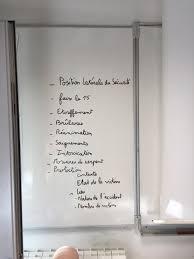 _ Position Latérale de Sécurité
_ faire le 15
_ Etouffement
_ Brûlures
_ Réanimation
_ Saignements
_ Intoxication
_ Morsures de serpent
_ Protection
_ Contexte
_ Etat de la victime
_ Lieu
_ Nature de l'accident
_ Nombre de victimes